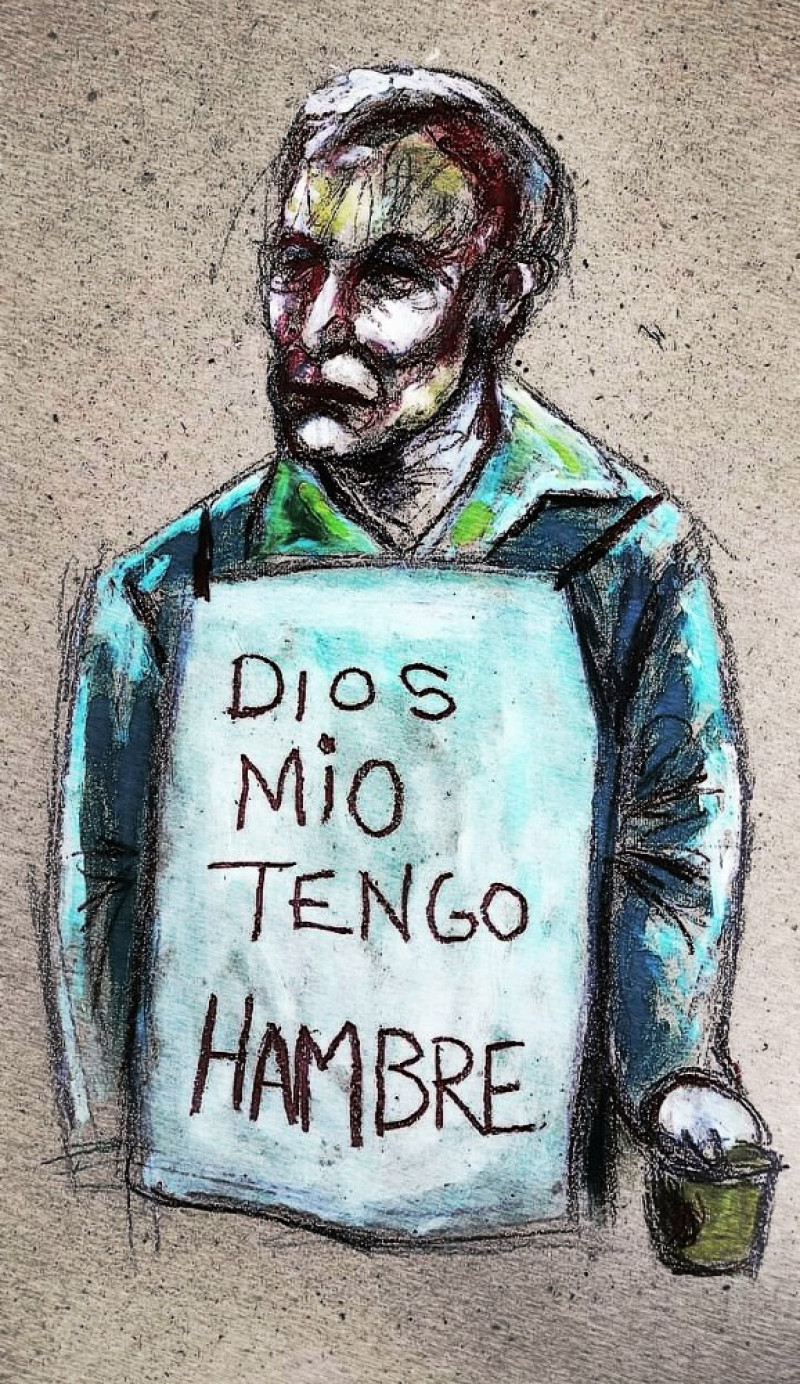 DIOS
MiO
TENGO
HAMBRE